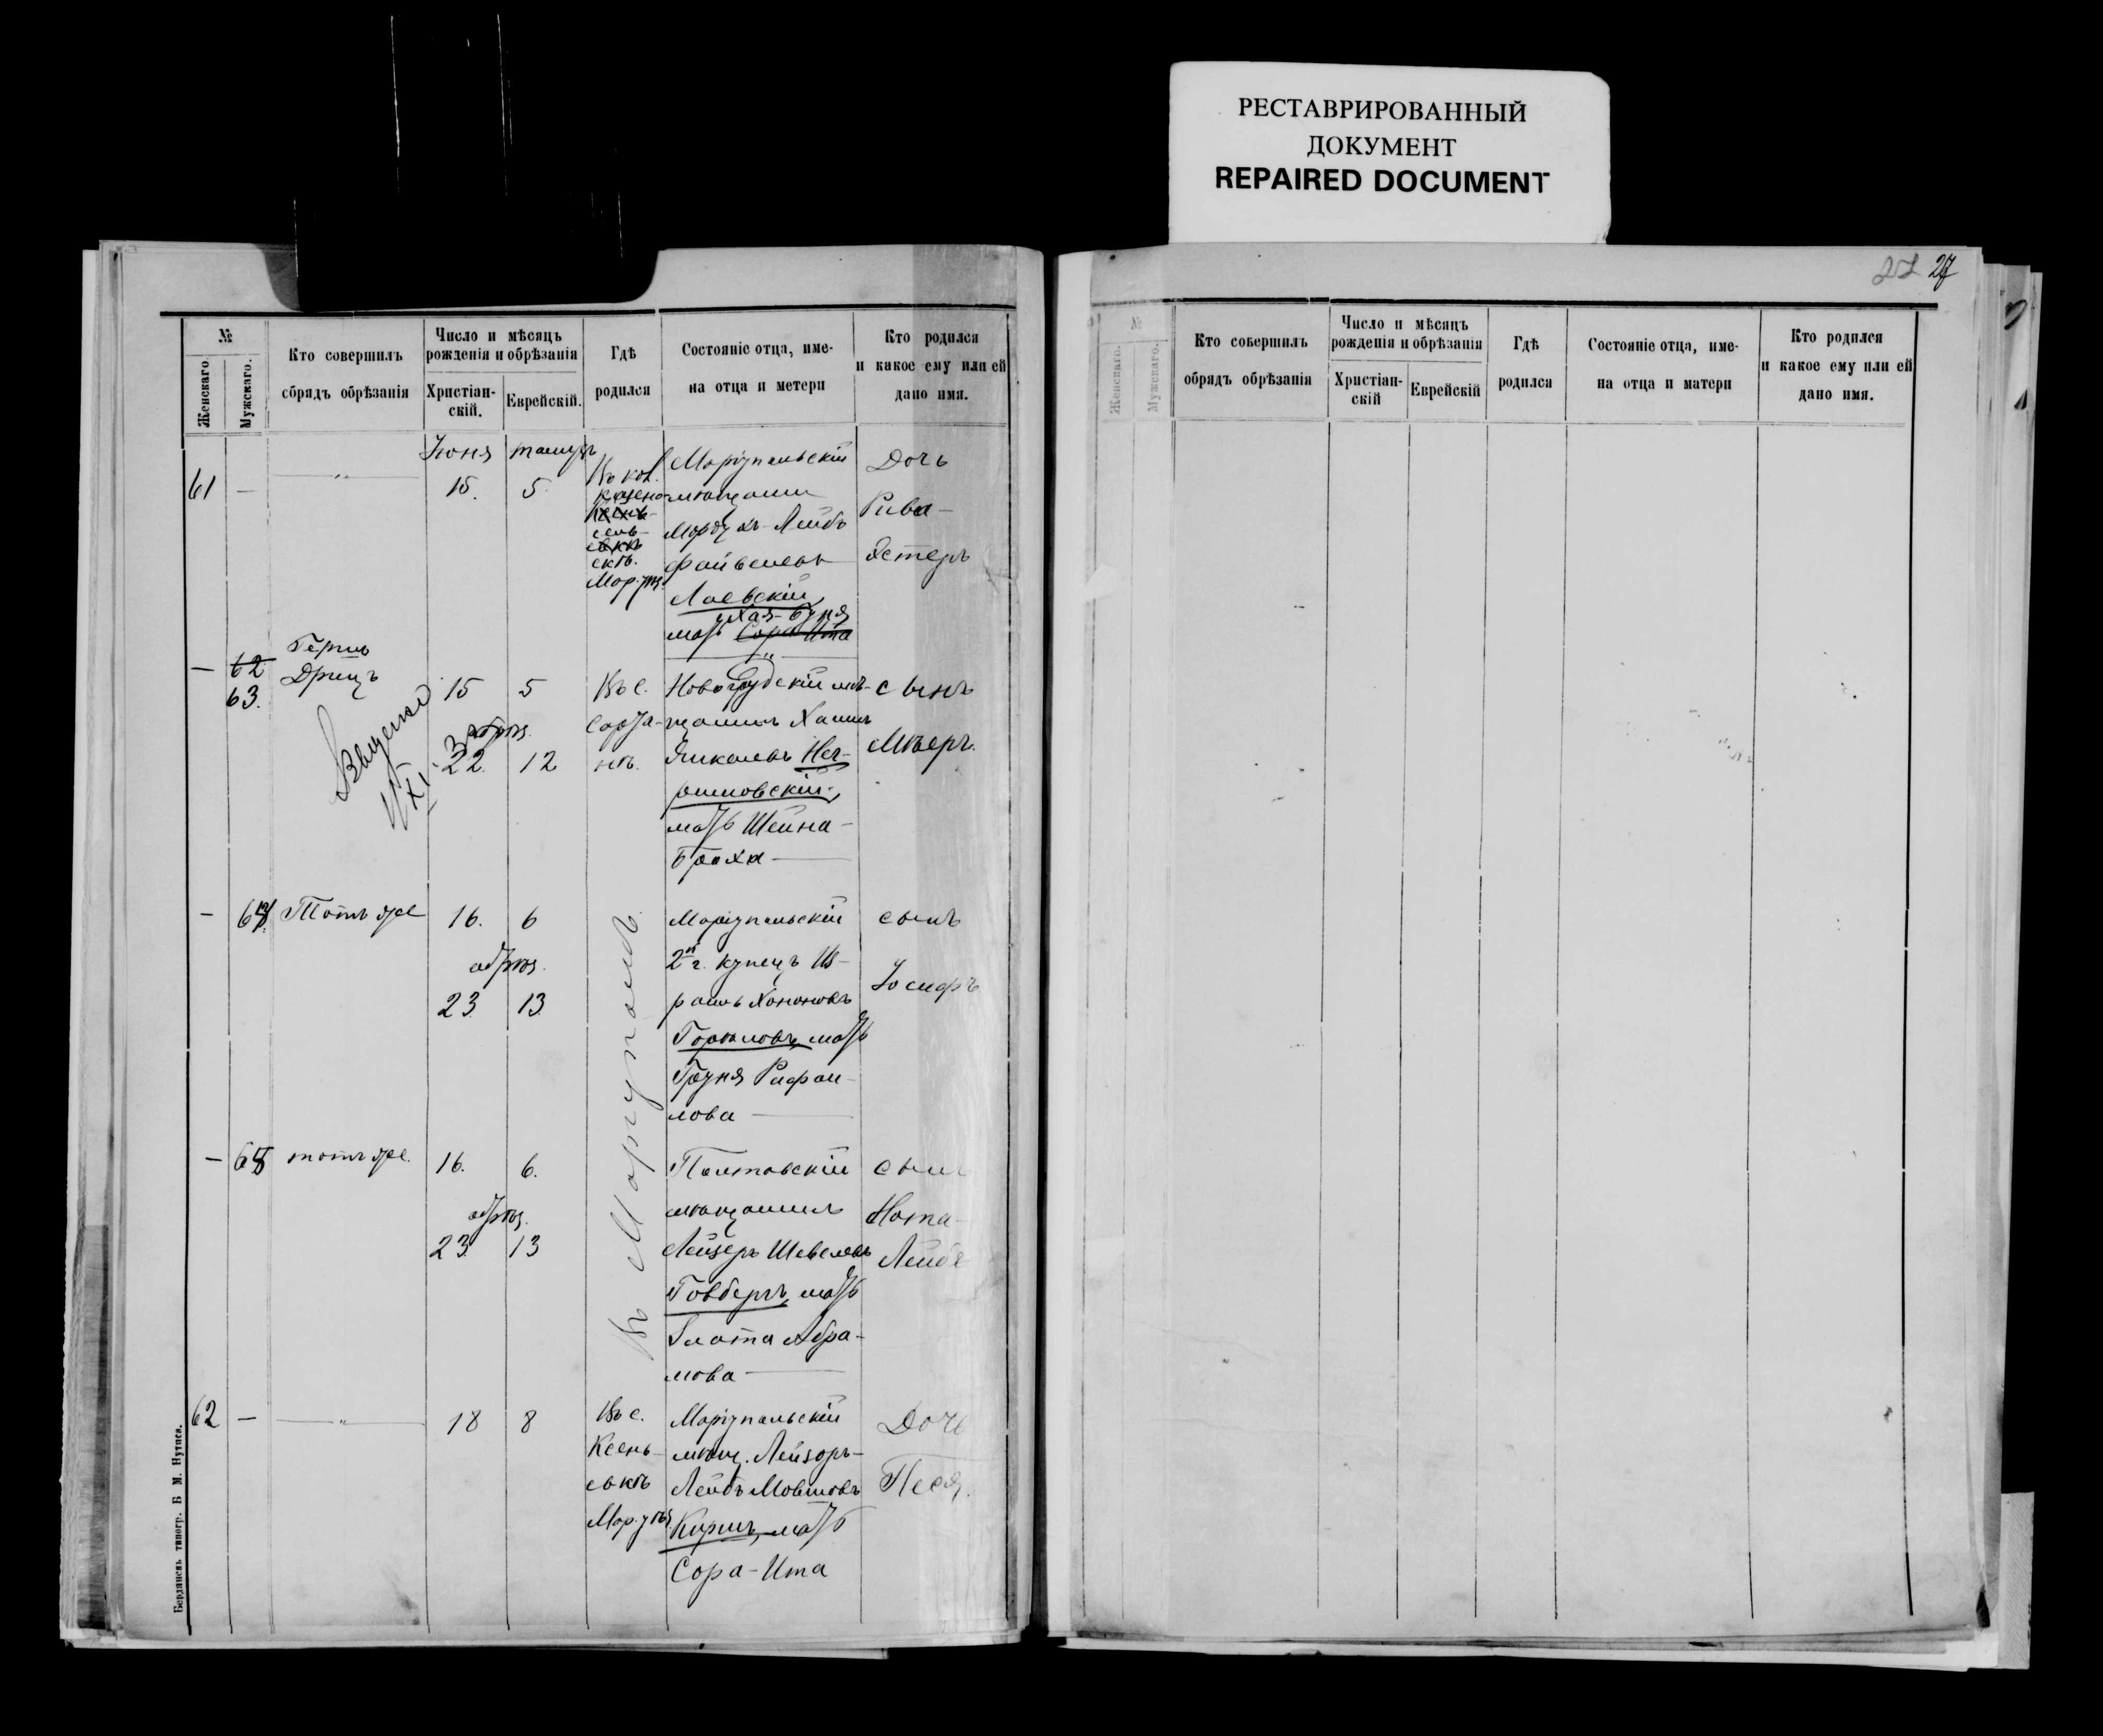 РЕСТАВРИРОВАННЫЙ
ДОКУМЕНТ
REPAIRED DOCUMENT
№
Женскаго
Мужскаго.
Кто совершилъ
обрядъ обрѣзанія
Число и мѣсяцъ
рожденія и обрѣзанія
Христіан-
скій.
Еврейскій.
Гдѣ
родился
Состояніе отца, име-
на отца и метери
Кто родился
и какое ему или ей
дано имя.
Іюня
61
—
15.
5
Въ кол.
Мар. у.
Маріупольскій
мѣщанинъ
Мордухъ-Лейбъ
Файвелевъ
Лаевскій,
Хая-Буня
мать Сора Ита
Дочь
Рива-
Эстеръ
—
62
63.
Герцъ
Дрицъ
15
5
обрѣз.
22.
12
XI
Въ с.
Сарта-
нѣ.
Новогрудскій мѣ-
щанинъ Хаимъ
Янкелевъ
мать Шейна-
Браха —
сынъ
Мееръ.
—
64
Тотъ же
16.
6
обрѣз.
23
13.
Маріупольскій
2й г. купецъ Из-
раиль Хононовъ
мать
Груня Рафаи-
лова —
сынъ
Іосифъ
—
65
тотъ же.
16.
6.
обрѣз.
23
13
Въ Маріуполѣ.
Полтавскій
мѣщанинъ
Лейзеръ Шевелевъ
мать
Злата Абра-
мова —
сынъ
Нота-
Лейбъ
62
—
18
8
Въ с.
Ксень-
евкѣ
Мар. у.
Маріупольскій
мѣщ. Лейзоръ-
Лейбъ Мовшовъ
мать
Сора-Ита
Дочь
Песя.
Бердянскъ типогр. Б М. Нутиса.
27 27
№
Женскаго.
Мужскаго.
Кто совершилъ
обрядъ обрѣзанія
Число и мѣсяцъ
рожденія и обрѣзанія
Христіан-
скій
Еврейскій
Гдѣ
родился
Состояніе отца, име-
на отца и матери
Кто родился
и какое ему или ей
дано имя.